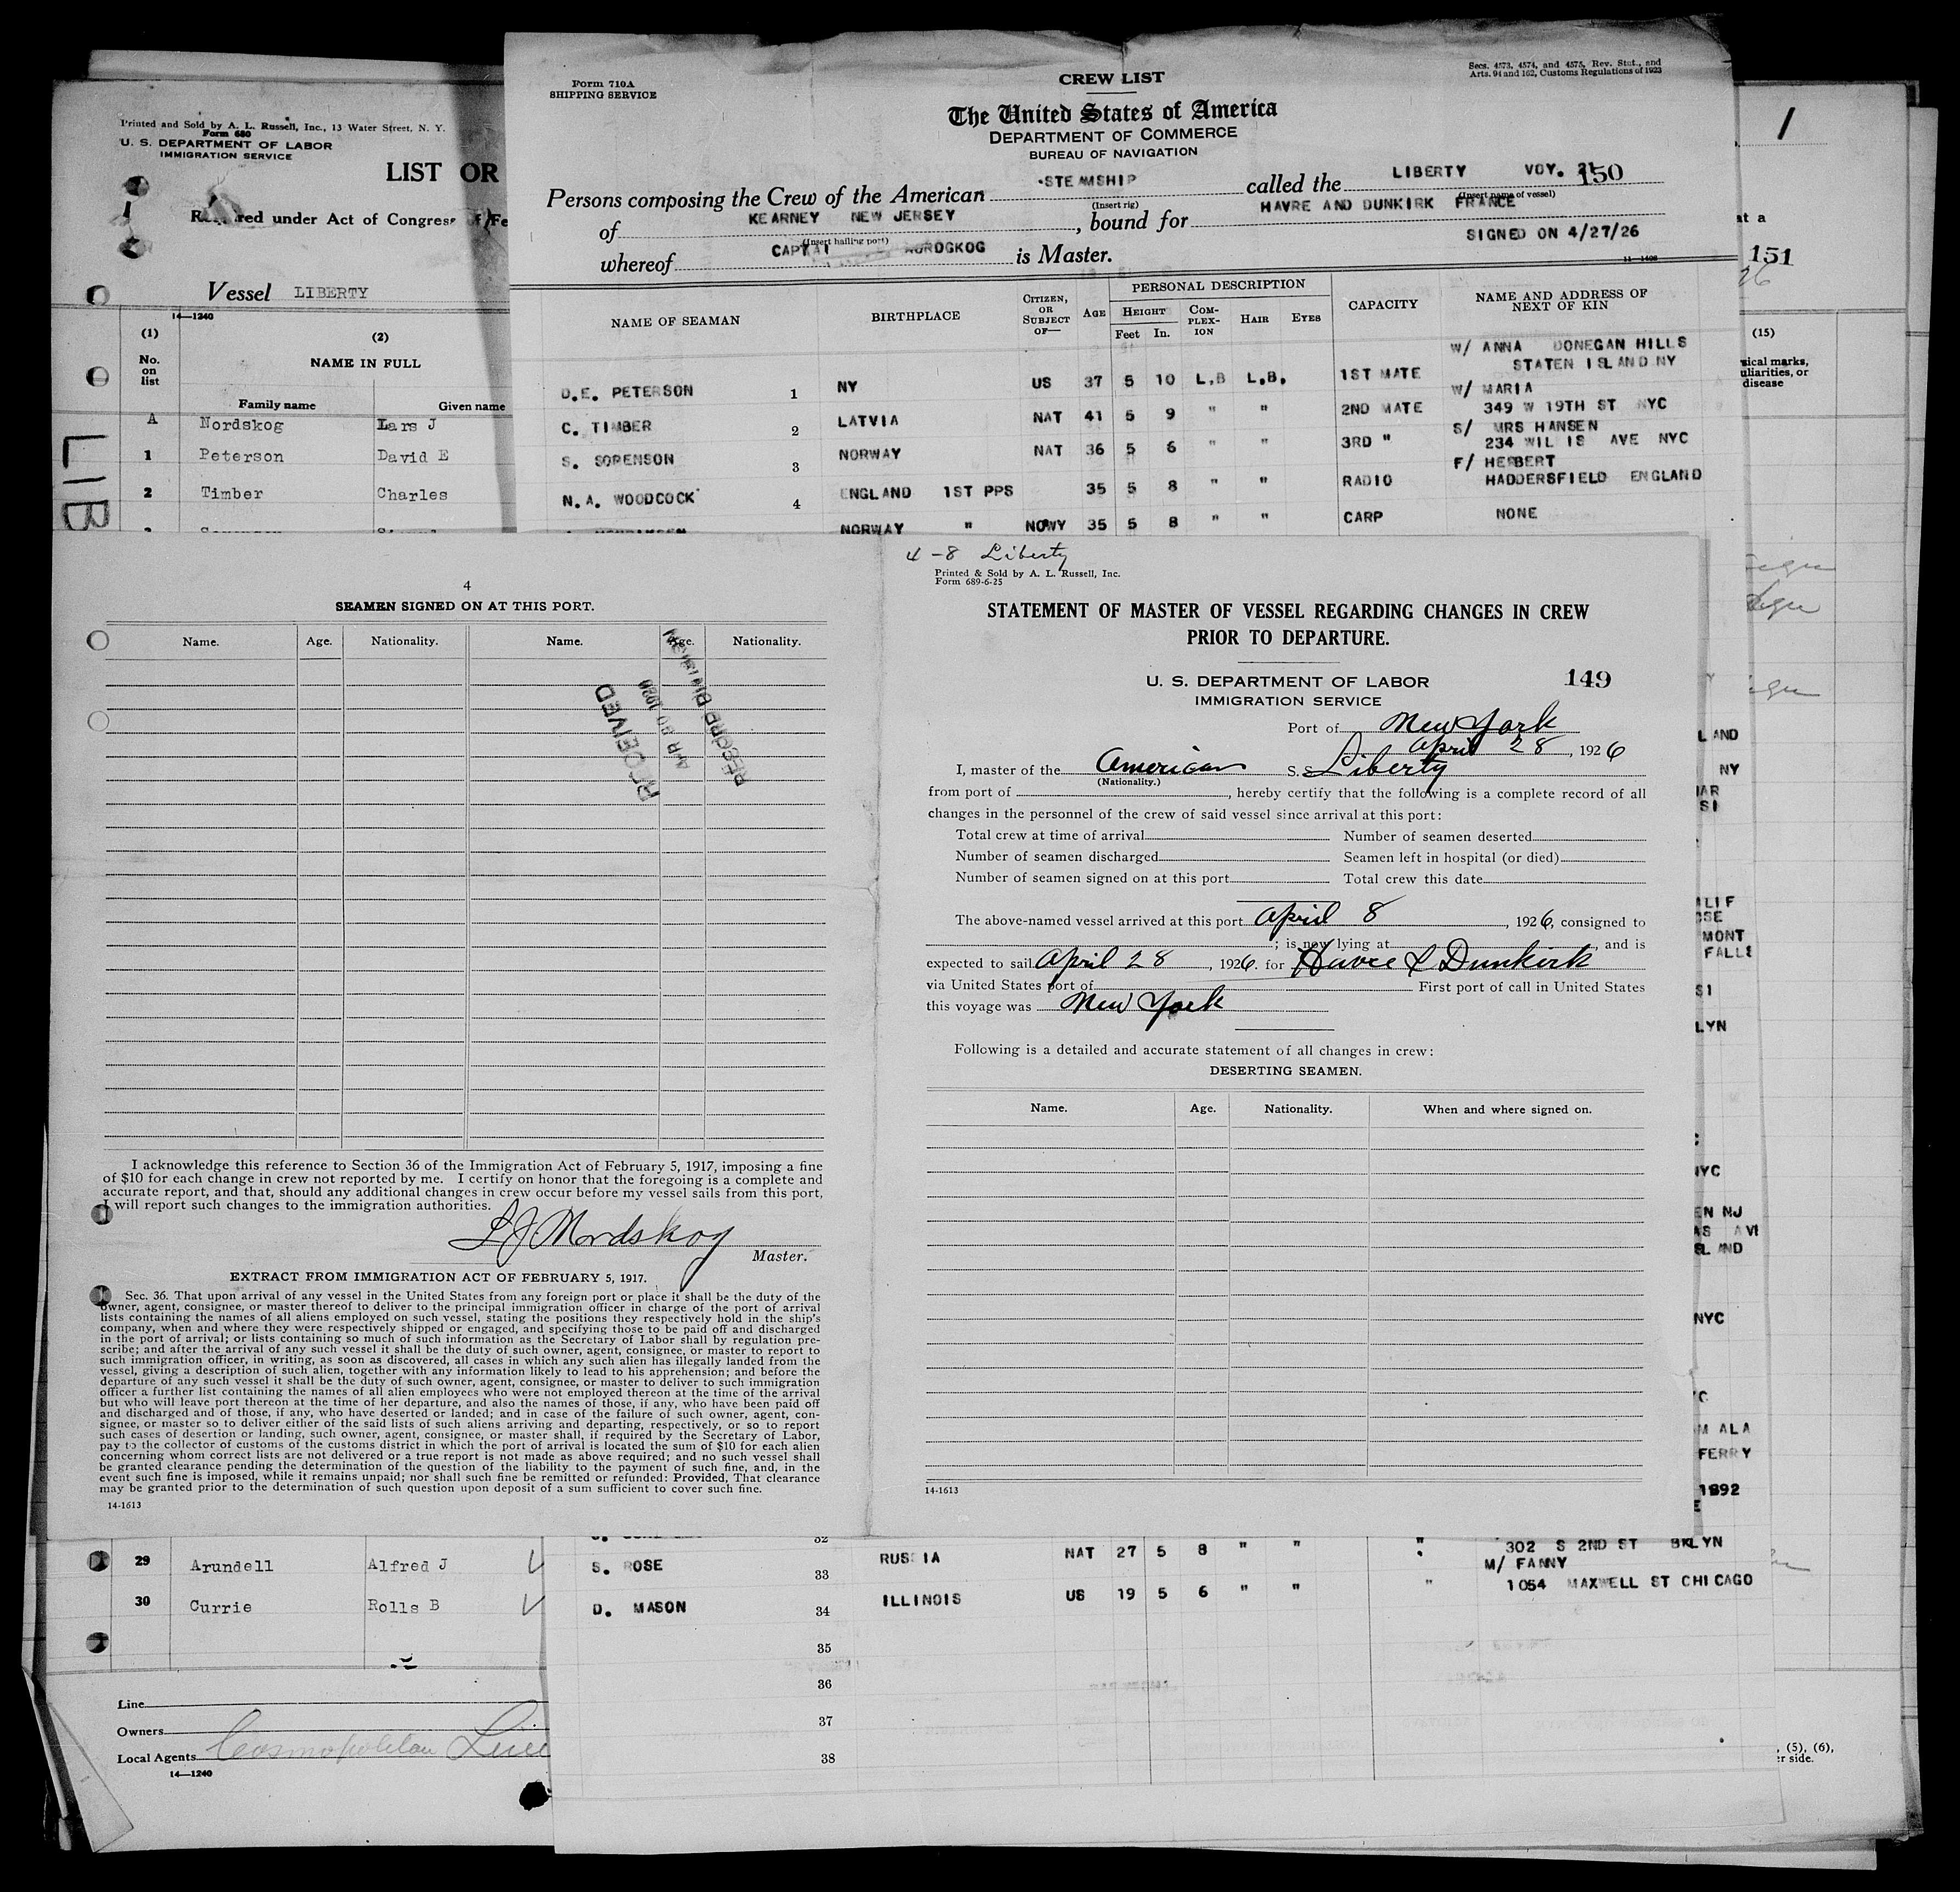 Printed and Sold by A. L. Russell, Inc., 13 Water Street, N. Y.
Form 680
U. S. DEPARTMENT OF LABOR
IMMIGRATION SERVICE
LIST OR
red under Act of Congress of Fe
Vessel LIBERTY
14—1240
(1) (2)
No. on list
NAME IN FULL
Family name Given name
A Nordskog Lars J
1 Peterson David E
2 Timber Charles
LIB
Form 710A
SHIPPING SERVICE
CREW LIST
Secs. 4573, 4574, and 4575, Rev. Stat., and
Arts. 94 and 162, Customs Regulations of 1923
The United States of America
DEPARTMENT OF COMMERCE
BUREAU OF NAVIGATION
Persons composing the Crew of the American STEAMSHIP called the LIBERTY VOY. 150
(Insert rig) (Insert name of vessel)
of KEARNEY NEW JERSEY, bound for HAVRE AND DUNKIRK FRANCE
(Insert hailing port)
SIGNED ON 4/27/26
whereof is Master.
11—1408
NAME OF SEAMAN BIRTHPLACE CITIZEN, OR SUBJECT OF— AGE PERSONAL DESCRIPTION CAPACITY NAME AND ADDRESS OF NEXT OF KIN
HEIGHT COMPLEXION HAIR EYES
Feet In.
W/ ANNA DONEGAN HILLS
D.E. PETERSON 1 NY US 37 5 10 L.B L.B. 1ST MATE STATEN ISLAND NY
W/ MARIA
C. TIMBER 2 LATVIA NAT 41 5 9 " " 2ND MATE 349 W 19TH ST NYC
S/ MRS HANSEN
S. SORENSON 3 NORWAY NAT 36 5 6 " " 3RD " 234 WIL IS AVE NYC
F/ HERBERT
N.A. WOODCOCK 4 ENGLAND 1ST PPS 35 5 8 " " RADIO HADDERSFIELD ENGLAND
NORWAY " NOWY 35 5 8 " " CARP NONE
1
at a
151
26
(15)
sical marks,
uliarities, or
disease
4
SEAMEN SIGNED ON AT THIS PORT.
Name. Age. Nationality. Name. Age. Nationality.
RECEIVED
RECORD DIVISION
I acknowledge this reference to Section 36 of the Immigration Act of February 5, 1917, imposing a fine
of $10 for each change in crew not reported by me. I certify on honor that the foregoing is a complete and
accurate report, and that, should any additional changes in crew occur before my vessel sails from this port,
I will report such changes to the immigration authorities.
L J Nordskog
Master.
EXTRACT FROM IMMIGRATION ACT OF FEBRUARY 5, 1917.
Sec. 36. That upon arrival of any vessel in the United States from any foreign port or place it shall be the duty of the
owner, agent, consignee, or master thereof to deliver to the principal immigration officer in charge of the port of arrival
lists containing the names of all aliens employed on such vessel, stating the positions they respectively hold in the ship's
company, when and where they were respectively shipped or engaged, and specifying those to be paid off and discharged
in the port of arrival; or lists containing so much of such information as the Secretary of Labor shall by regulation pre-
scribe; and after the arrival of any such vessel it shall be the duty of such owner, agent, consignee, or master to report to
such immigration officer, in writing, as soon as discovered, all cases in which any such alien has illegally landed from the
vessel, giving a description of such alien, together with any information likely to lead to his apprehension; and before the
departure of any such vessel it shall be the duty of such owner, agent, consignee, or master to deliver to such immigration
officer a further list containing the names of all alien employees who were not employed thereon at the time of the arrival
but who will leave port thereon at the time of her departure, and also the names of those, if any, who have been paid off
and discharged and of those, if any, who have deserted or landed; and in case of the failure of such owner, agent, con-
signee, or master so to deliver either of the said lists of such aliens arriving and departing, respectively, or so to report
such cases of desertion or landing, such owner, agent, consignee, or master shall, if required by the Secretary of Labor,
pay to the collector of customs of the customs district in which the port of arrival is located the sum of $10 for each alien
concerning whom correct lists are not delivered or a true report is not made as above required; and no such vessel shall
be granted clearance pending the determination of the question of the liability to the payment of such fine, and, in the
event such fine is imposed, while it remains unpaid; nor shall such fine be remitted or refunded: Provided, That clearance
may be granted prior to the determination of such question upon deposit of a sum sufficient to cover such fine.
14-1613
4 - 8 Liberty
Printed & Sold by A. L. Russell, Inc.
Form 689-6-25
STATEMENT OF MASTER OF VESSEL REGARDING CHANGES IN CREW
PRIOR TO DEPARTURE.
U. S. DEPARTMENT OF LABOR
149
IMMIGRATION SERVICE
Port of New York
April 28, 1926
I, master of the American S. S. Liberty
(Nationality.)
from port of , hereby certify that the following is a complete record of all
changes in the personnel of the crew of said vessel since arrival at this port:
Total crew at time of arrival Number of seamen deserted
Number of seamen discharged Seamen left in hospital (or died)
Number of seamen signed on at this port Total crew this date
The above-named vessel arrived at this port April 8, 1926, consigned to
; is now lying at , and is
expected to sail April 28, 1926. for Havre & Dunkirk
via United States port of First port of call in United States
this voyage was New York
Following is a detailed and accurate statement of all changes in crew:
DESERTING SEAMEN.
Name. Age. Nationality. When and where signed on.
14-1613
LAND
NY
ALIF
MONT
FALLS
LYN
NYC
EN NJ
AS AVE
NYC
M ALA
FERRY
1892
29 Arundell Alfred J
30 Currie Rolls B
32
" 302 S 2ND ST BKLYN
S. ROSE 33 RUSSIA NAT 27 5 8 " " " M/ FANNY
D. MASON 34 ILLINOIS US 19 5 6 " " " 1054 MAXWELL ST CHICAGO
35
36
37
38
Line
Owners
Local Agents Cosmopolitan Line
14—1240
, (5), (6),
er side.